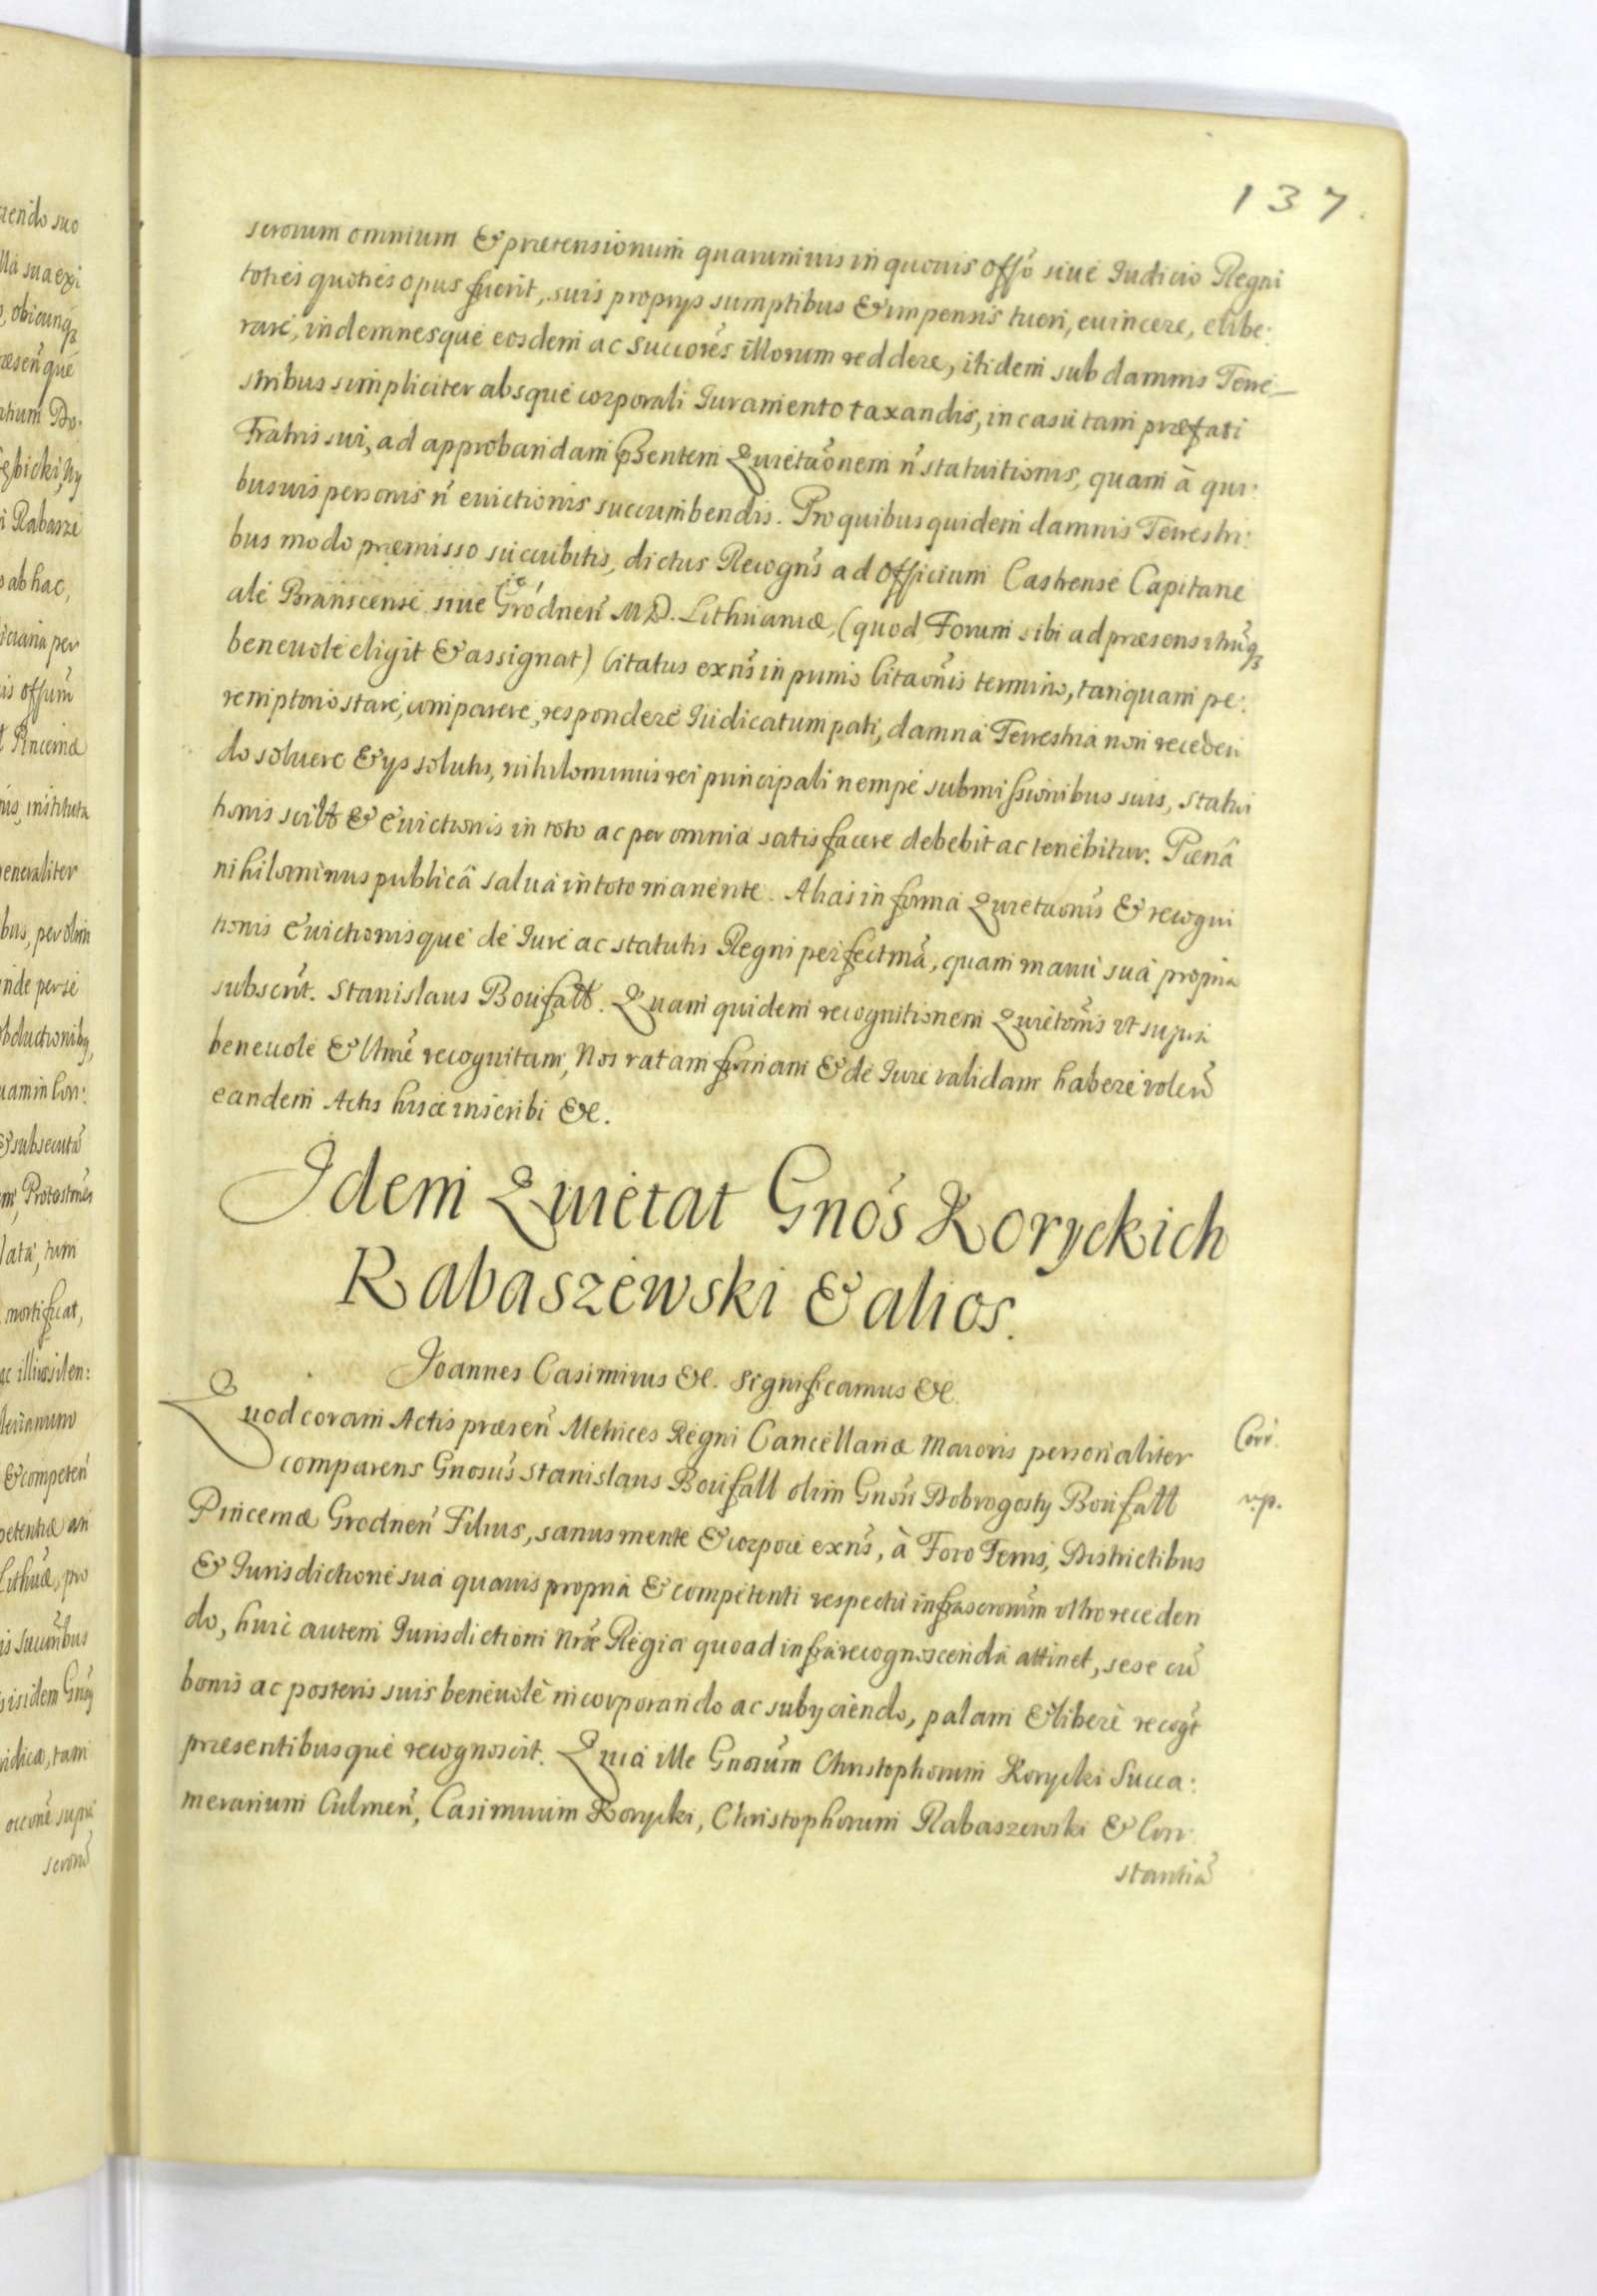 137.
scrorum omnium & prætensionum quarumvis in quovis Offō siue Iudicio Regni
toties quoties opus fuerit, suis proprys sumptibus & impensis tueri, euincere, elibe:
rare, indemnesque eosdem ac Succores illorum reddere, itidem sub damnis Terre
stribus simpliciter absque corporali Iuramento taxandis, in casu tam præfati
Fratris sui, ad approbandam psentem Quietaōnem ñ statuitionis, quam à qui:
busuis personis ñ euictionis succumbendis. Pro quibus quidem damnis Terrestri:
bus modo præmisso succubitis, dictus Recogñs ad Officium Castrense Capitane
ale Branscense siue Grodneñ M. D. Lithuaniæ, (quod Forum sibi ad præsens
beneuole eligit & assignat) Citatus exñs in primo Citaōnis termino, tanquam pe:
remptorio stare, comparere, respondere Iudicatum pati, damna Terrestria non receden
do soluere & ys solutis, nihilominus rei principali nempe submissionibus suis, statui
tionis scilt & Euictionis in toto ac per omnia satisfacere debebit ac tenebitur. Pœnâ
nihilominus publicâ salua in toto manente. Alias in forma Quietaonis & recogni
tionis Euictionisque de Iure ac statutis Regni perfectmā, quam manu sua propria
subscrt. Stanislaus Boufałł. Quam quidem recognitionem Quietōnis vt supra
beneuole & Ltme recognitam, Nos ratam firmam & de Iure validam habere voleñ
eandem Actis hisce inscribi &c.
Idem Quietat Gnos Koryckich
Rabaszewski & alios.
Joannes Casimirus &c. Significamus &c.
Quod coram Actis præseñ Metrices Regni Cancellariæ Maioris personaliter
comparens Gnosus Stanislaus Boufałł olim Gnosi Dobrogosty Boufałł
Pincernæ Grodneñ Filius, sanus mente & corpore exñs, à Foro Terris, Districtibus
& Iurisdictione sua quauis propria & competenti respectu infrascrorum vltro receden
do, huic autem Iurisdictioni Nræ Regia quoad infra recognoscenda attinet, sese cū
bonis ac posteris suis beneuole incorporando ac subyciendo, palam & libere recogt
præsentibusque recognoscit. Quia ille Gnosum Christophorum Korycki Succa:
merarium Culmeñ, Casimirum Korycki, Christophorum Rabaszewski & Con
stantiā
Corr.
rp.